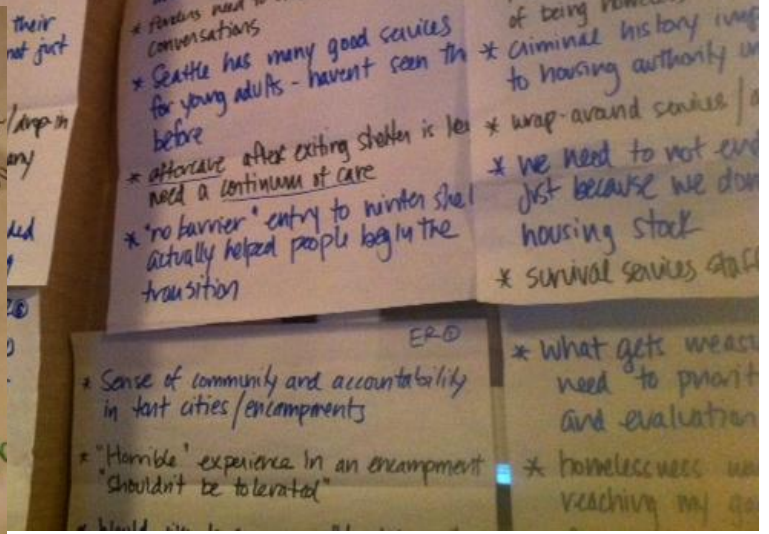 their
not just
/drop-in
any
* Funders need to
conversations
* Seattle has many good services
for young adults - havent seen th
before
* aftercare after exiting shelter is
need a continuum of care
* "no barrier" entry to winter shel
actually helped people begin the
transition
of being
* criminal history
to housing authority
* wrap-around services /
* we need to not end
just because we don
housing stock
* survival services staff
ER①
* Sense of community and accountability
in tent cities/encampments
* "Horrible" experience in an encampment
"shouldn't be tolerated"
* What gets measu
need to priorit
and evaluation
* homelessness
reaching my